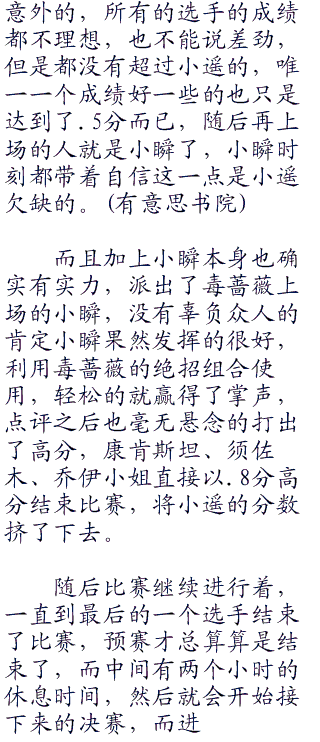 意外的，所有的选手的成绩
都不理想，也不能说差劲，
但是都没有超过小遥的，唯
一一个成绩好一些的也只是
达到了.5分而已，随后再上
场的人就是小瞬了，小瞬时
刻都带着自信这一点是小遥
欠缺的。(有意思书院)
而且加上小瞬本身也确
实有实力，派出了毒蔷薇上
场的小瞬，没有辜负众人的
肯定小瞬果然发挥的很好，
利用毒蔷薇的绝招组合使
用，轻松的就赢得了掌声，
点评之后也毫无悬念的打出
了高分，康肯斯坦、须佐
木、乔伊小姐直接以.8分高
分结束比赛，将小遥的分数
挤了下去。
随后比赛继续进行着，
一直到最后的一个选手结束
了比赛，预赛才总算算是结
束了，而中间有两个小时的
休息时间，然后就会开始接
下来的决赛，而进